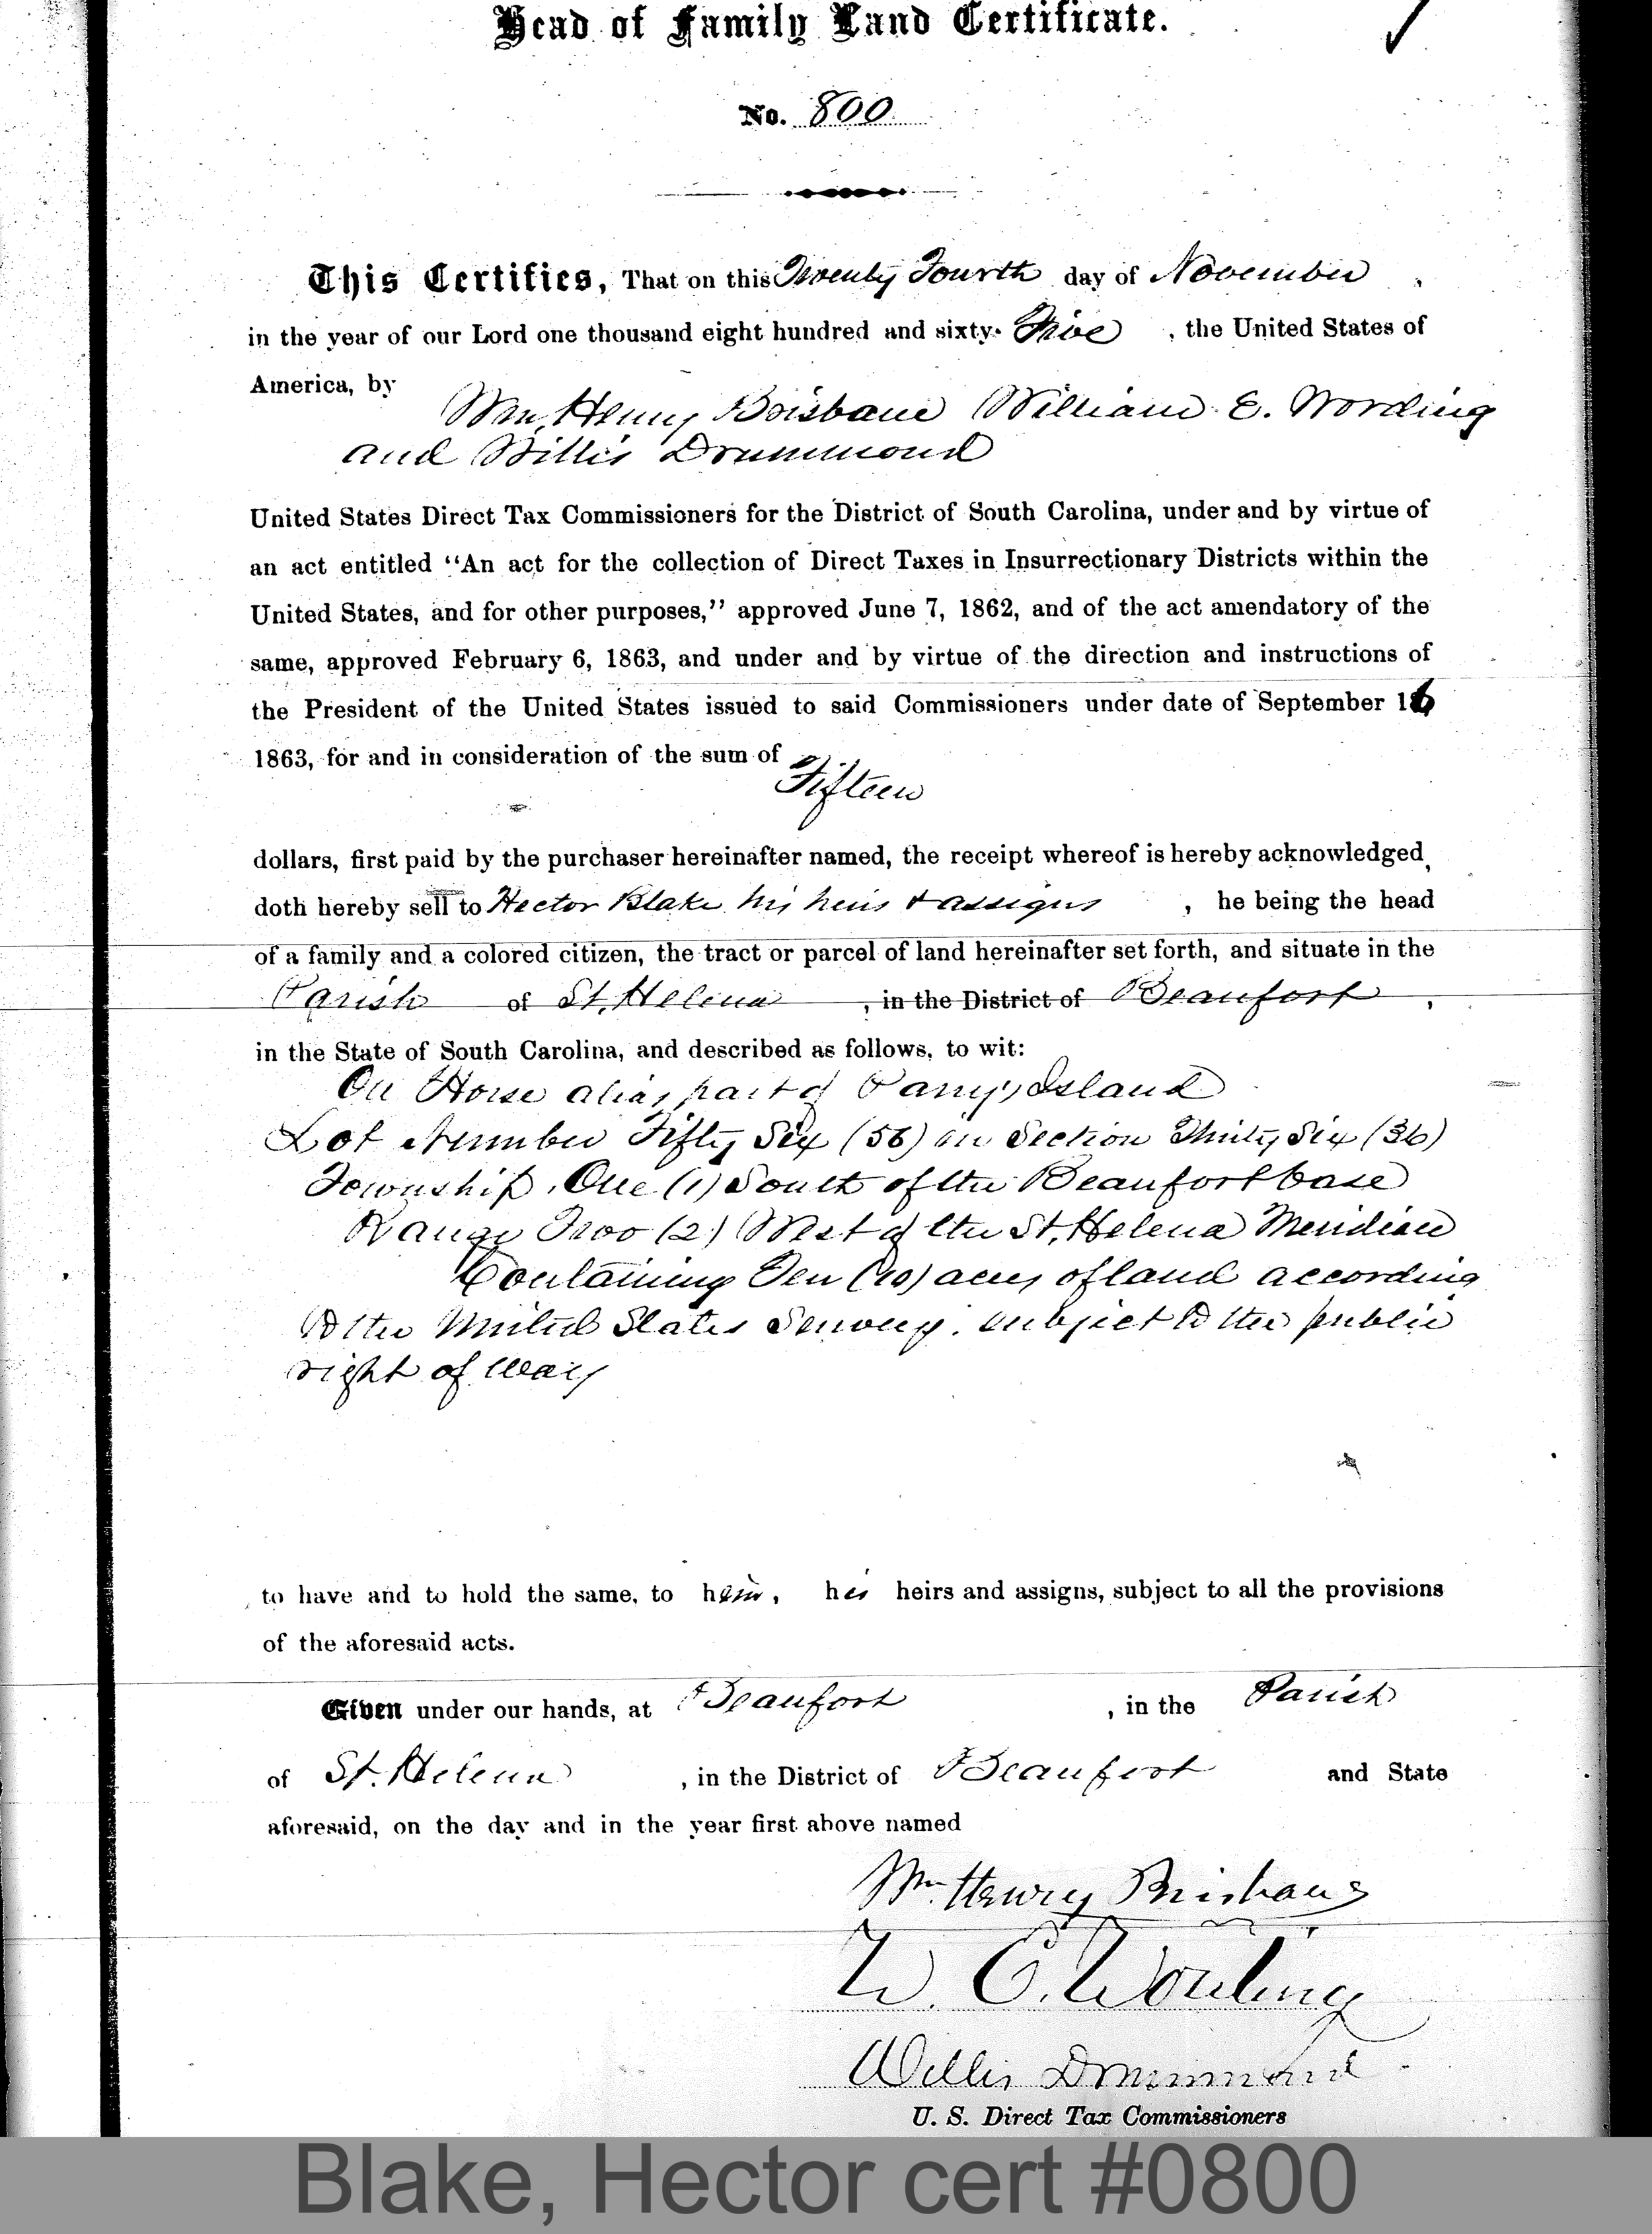 Head of Family Land Certificate.
No. 800
This Certifies, That on this Twenty Fourth day of November ,
in the year of our Lord one thousand eight hundred and sixty- Five , the United States of
America, by
Wm. Henry Brisbane William E. Wording
and Willis Drummond
United States Direct Tax Commissioners for the District of South Carolina, under and by virtue of
an act entitled “An act for the collection of Direct Taxes in Insurrectionary Districts within the
United States, and for other purposes,” approved June 7, 1862, and of the act amendatory of the
same, approved February 6, 1863, and under and by virtue of the direction and instructions of
the President of the United States issued to said Commissioners under date of September 16
1863, for and in consideration of the sum of
Fifteen
dollars, first paid by the purchaser hereinafter named, the receipt whereof is hereby acknowledged,
doth hereby sell to Hector Blake his heirs & assigns , he being the head
of a family and a colored citizen, the tract or parcel of land hereinafter set forth, and situate in the
Parish of St. Helena , in the District of Beaufort ,
in the State of South Carolina, and described as follows, to wit:
On Horse alias part of Parry's Island
Lot Number Fifty Six (56) in Section Thirty Six (36)
Township One (1) South of the Beaufort base
Range Two (2) West of the St. Helena Meridian
Containing Ten (10) acres of land according
to the United States Survey. subject to the public
right of way
to have and to hold the same, to him, his heirs and assigns, subject to all the provisions
of the aforesaid acts.
Given under our hands, at Beaufort , in the Parish
of St. Helena , in the District of Beaufort and State
aforesaid, on the day and in the year first above named
Wm. Henry Brisbane
W. E. Wording
Willis Drummond
U. S. Direct Tax Commissioners
Blake, Hector cert #0800